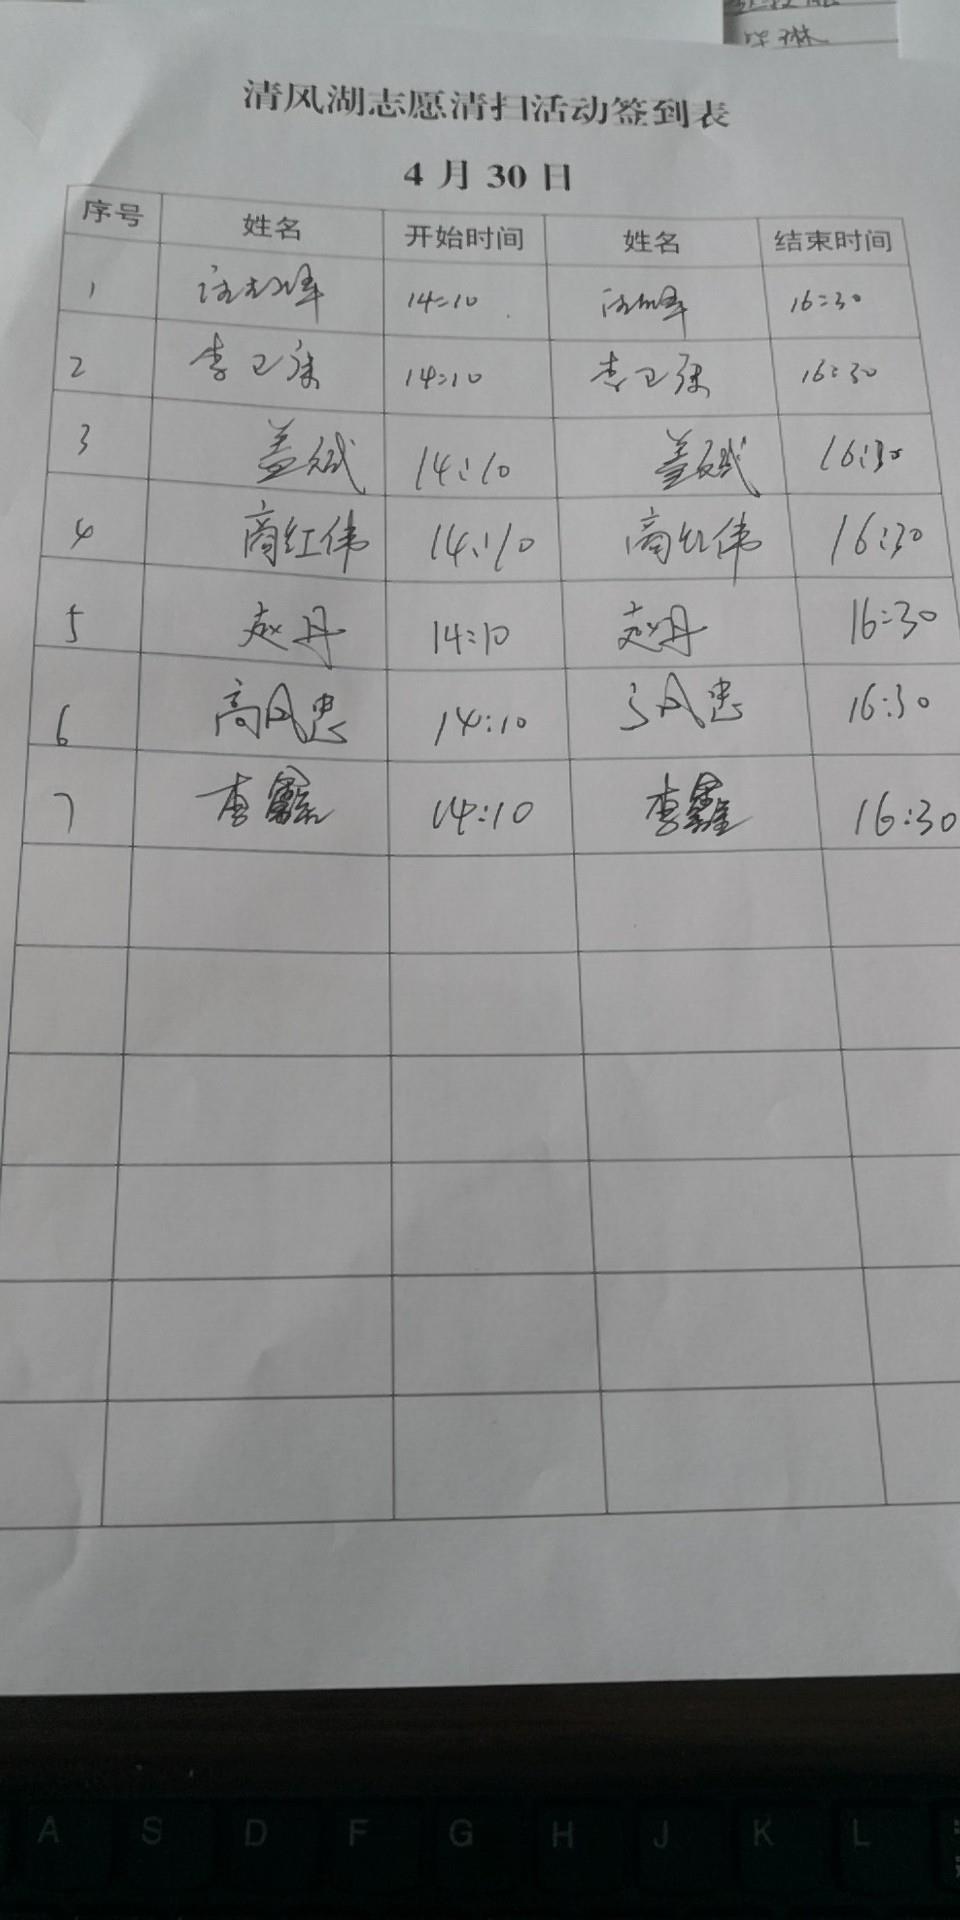 毕琳
清风湖志愿清扫活动签到表
4月30日
序号 姓名 开始时间 姓名 结束时间
1 14:10 16:30
2 李卫 14:10 李卫 16:30
3 盖斌 14:10 盖斌 16:30
4 商红伟 14:10 商红伟 16:30
5 赵丹 14:10 赵丹 16:30
6 高风忠 14:10 高风忠 16:30
7 李鑫 14:10 李鑫 16:30
A S D F G H J K L